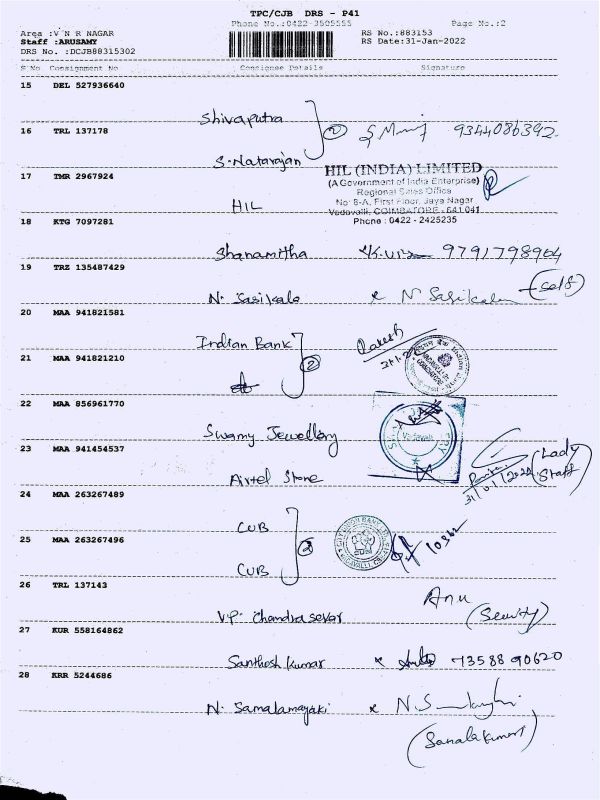 TPC/CJB DRS - P41
Phone No.:0422-3505555 Page No.:2
Area :V N R NAGAR
Staff :ARUSAMY
DRS No. :DCJB88315302
RS No.:883153
RS Date:31-Jan-2022
S No Consignment No Consignee Details Signature
15 DEL 527936640
Shivaputra
16 TRL 137178
2 9344086392
S. Natarajan
17 TMR 2967924
HIL (INDIA) LIMITED
(A Government of India Enterprise)
Regional Sales Office
No: 8-A, First Floor, Jaya Nagar
Vadavalli, COIMBATORE - 641 041
Phone : 0422 - 2425235
HIL
18 KTG 7097281
Shanamitha 9791798964
19 TRZ 135487429
N. Sasikala N Sasikala (self)
20 MAA 941821581
Indian Bank 2
21 MAA 941821210
22 MAA 856961770
Swamy Jewellery
23 MAA 941454537
Airtel Store 31/01/2022 (Lady Staff)
24 MAA 263267489
CUB 2 10362
25 MAA 263267496
CUB
26 TRL 137143
V.P. Chandrasekar Anu (Security)
27 KUR 558164862
Santhosh Kumar 73588 90620
28 KRR 5244686
N. Samalamayaki